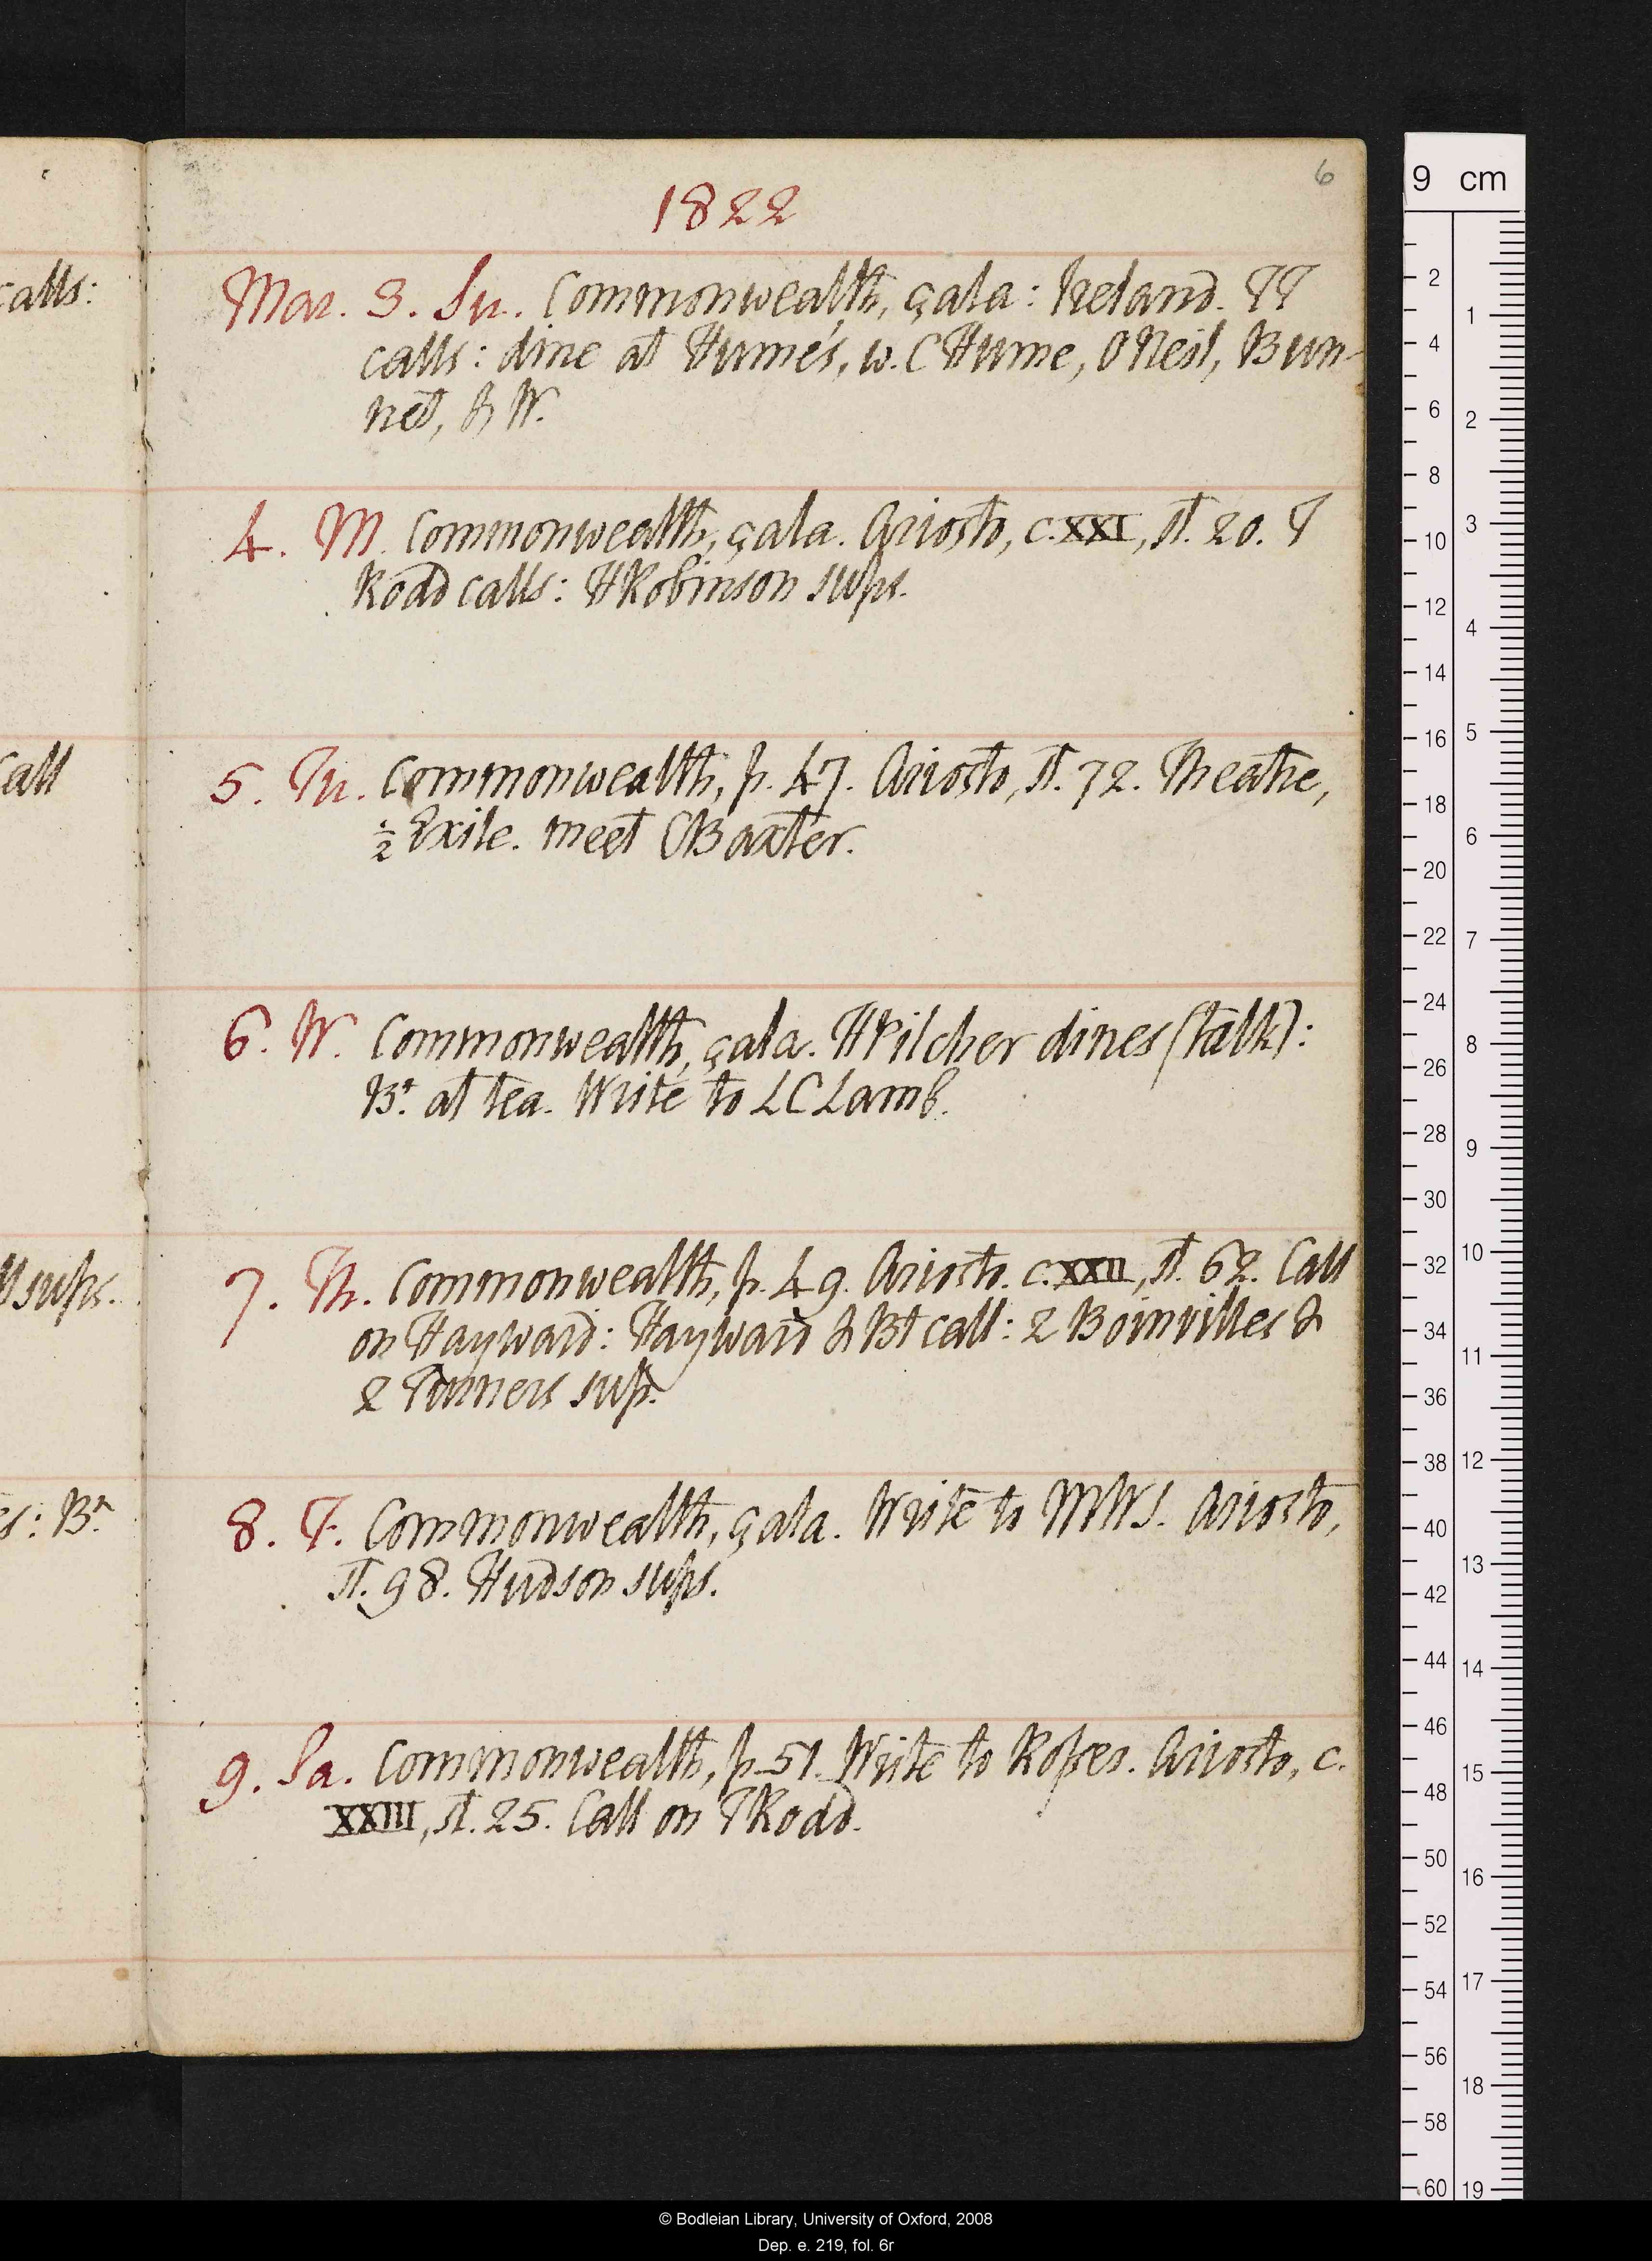 6
1822
calls:
Mar. 3. Su. Commonwealth, çala: Ireland. TT
calls: dine at Hume's, w. C Hume, O Neil, Bun-
net, & W.
4. M. Commonwealth, çala. Ariosto, c. XXI, st. 20. T
Rodd calls: H Robinson sups.
call
5. Tu. Commonwealth, p. 47. Ariosto, st. 72. Theatre,
½ Exile. meet C Baxter.
6. W. Commonwealth, çala. H Pilcher dines (talk):
Bt. at tea. Write to L C Lamb.
sups.
7. Th. Commonwealth, p. 49. Ariosto. c. XXII, st. 62. Call
on Hayward: Hayward & Bt call: 2 Boinvilles &
2 Turners sup.
s: Bn.
8. F. Commonwealth, çala. Write to MWS. Ariosto,
st. 98. Hudson sups.
9. Sa. Commonwealth, p. 51. Write to Roper. Ariosto, c.
XXIII, st. 25. Call on T Rodd.
9 cm
2
4
6
8
10
12
14
16
18
20
22
24
26
28
30
32
34
36
38
40
42
44
46
48
50
52
54
56
58
60
1
2
3
4
5
6
7
8
9
10
11
12
13
14
15
16
17
18
19
© Bodleian Library, University of Oxford, 2008
Dep. e. 219, fol. 6r